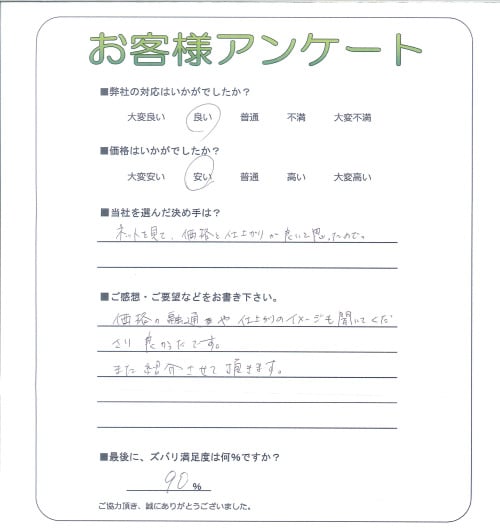 お客様アンケート
■弊社の対応はいかがでしたか?
大変良い 良い 普通 不満 大変不満
■価格はいかがでしたか?
大変安い 安い 普通 高い 大変高い
■当社を選んだ決め手は?
ネットを見て、価格と仕上がりが良いと思ったので。
■ご感想・ご要望などをお書き下さい。
価格の融通や仕上がりのイメージも聞いてくだ
さり良かったです。
また紹介させて頂きます。
■最後に、ズバリ満足度は何%ですか?
90 %
ご協力頂き、誠にありがとうございました。